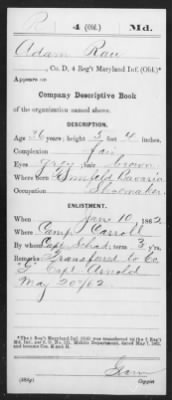 R 4 (Old.) Md.
Adam Rau
, Co. D, 4 Reg't Maryland Inf. (Old.)*
Appears on
Company Descriptive Book
of the organization named above.
DESCRIPTION.
Age 36 years; height 5 feet 4 inches.
Complexion fair
Eyes grey; hair brown
Where born Bavaria
Occupation Shoemaker
ENLISTMENT.
When Jany 10, 1862.
Where Camp Carroll
By whom Capt Schad; term 3 y'rs.
Remarks: Transferred to Co
"G" Capt Arnold
May 20/62
Copyist.